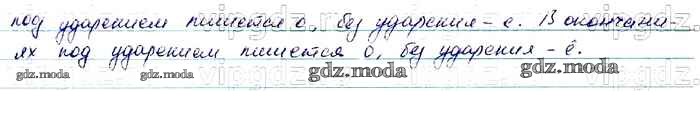 под ударением пишется о, без ударения - е. В окончани-
ях под ударением пишется о, без ударения - ё.
gdz.moda gdz.moda gdz.moda